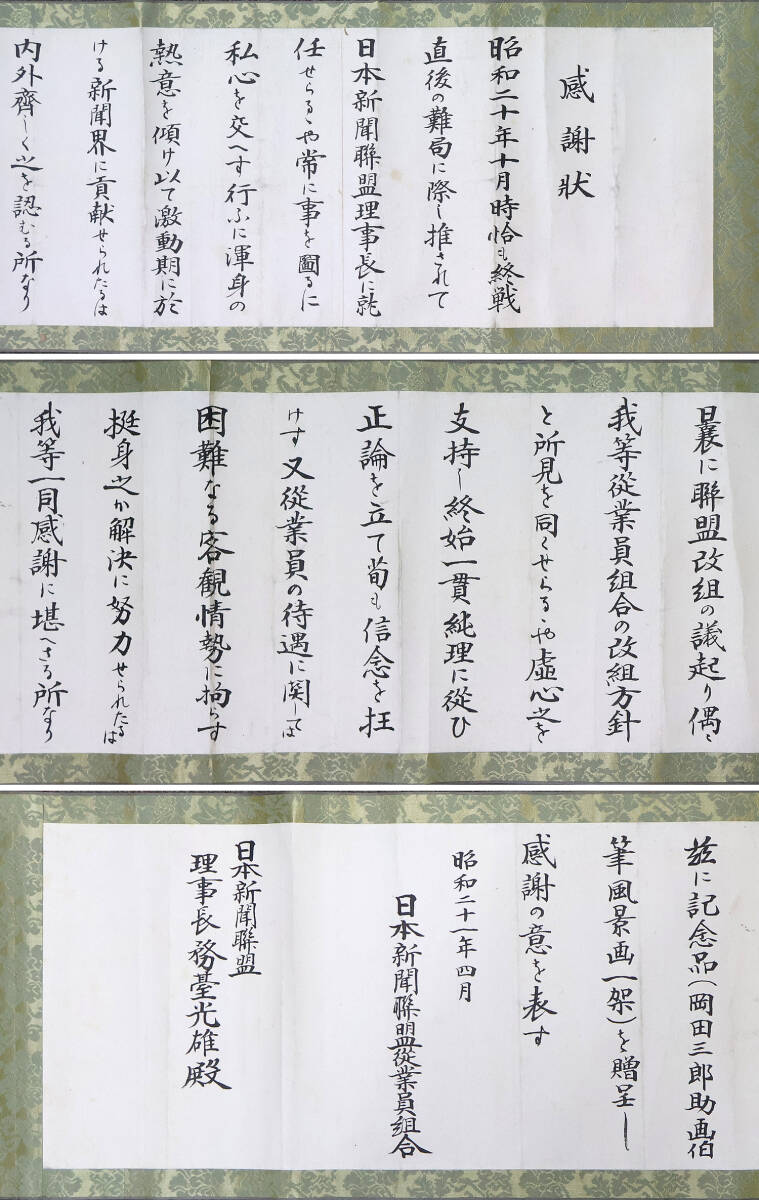 感謝狀
昭和二十年十月時恰も終戦
直後の難局に際し推されて
日本新聞聯盟理事長に就
任せらるゝや常に事を圖るに
私心を交へす行ふに渾身の
熱意を傾け以て激動期に於
ける新聞界に貢献せられたるは
内外齊しく之を認むる所なり
曩に聯盟改組の議起り偶〻
我等從業員組合の改組方針
と所見を同くせらるゝや虛心之を
支持し終始一貫純理に從ひ
正論を立て苟も信念を枉
けす又從業員の待遇に関しては
困難なる客觀情勢に拘らす
挺身之か解決に努力せられたるは
我等一同感謝に堪へさる所なり
玆に記念品(岡田三郎助画伯
筆風景画一架)を贈呈し
感謝の意を表す
昭和二十一年四月
日本新聞聯盟從業員組合
日本新聞聯盟
理事長務臺光雄殿